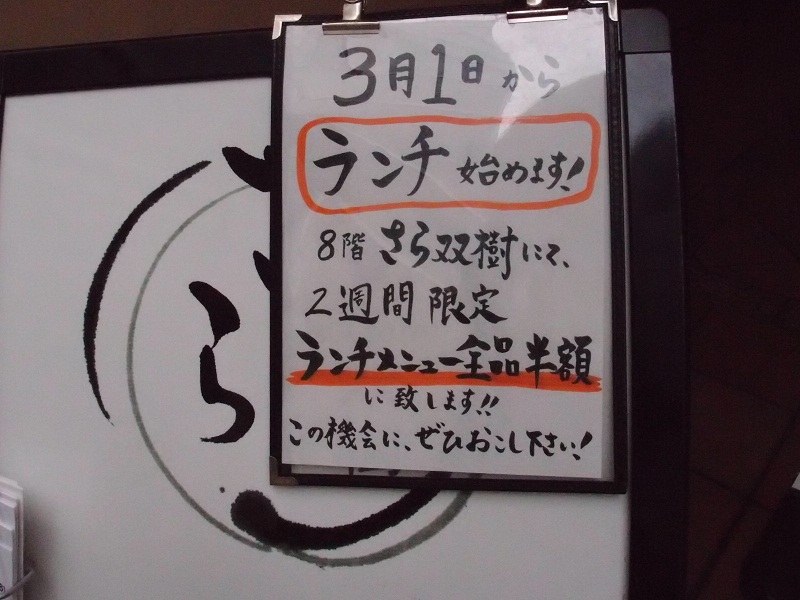 3月1日から
ランチ始めます!
8階 さら双樹にて、
2週間 限定
ランチメニュー全品半額
に致します!!
この機会に、ぜひおこし下さい!
ら